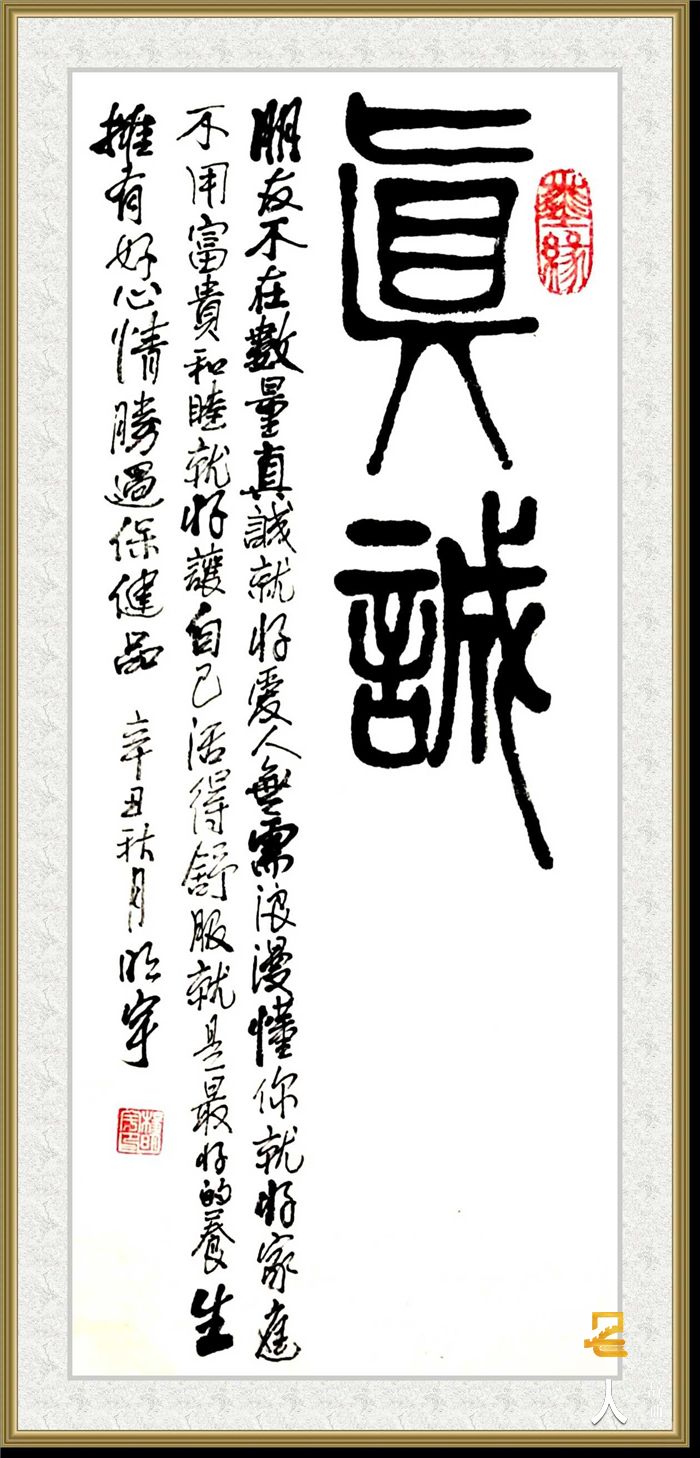 真誠
墨緣
朋友不在數量真誠就好愛人無需浪漫懂你就好家庭
不用富貴和睦就好讓自己活得舒服就是最好的養生
擁有好心情勝過保健品 辛丑秋月 明宇
人